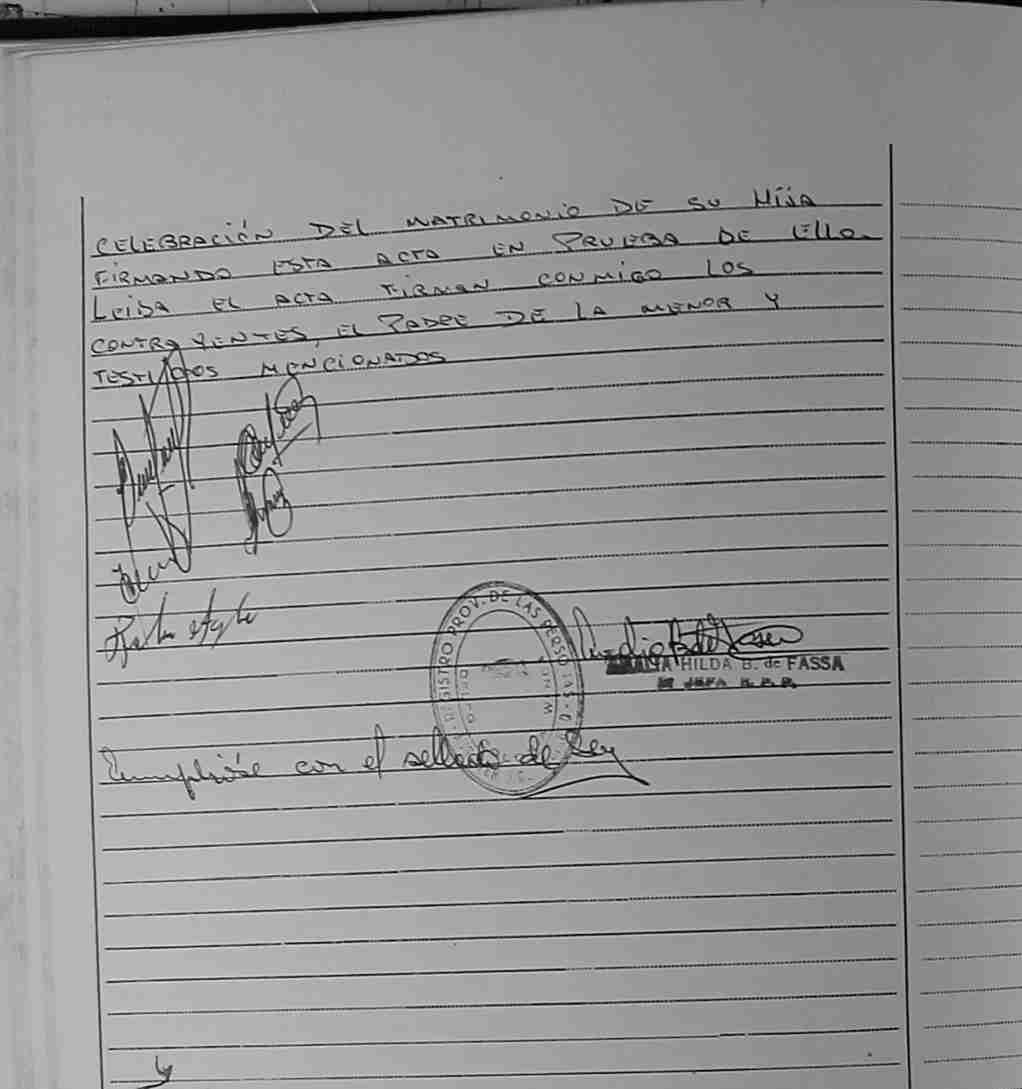 CELEBRACIÓN DEL MATRIMONIO DE SU HIJA
FIRMANDO ESTA ACTA EN PRUEBA DE ELLO.
LEIDA EL ACTA FIRMAN CONMIGO LOS
CONTRAYENTES, EL PADRE DE LA MENOR Y
TESTIGOS MENCIONADOS
REGISTRO PROV. DE LAS PERSONAS
HILDA B. de FASSA
JEFA
Cumplióse con el sellado de Ley